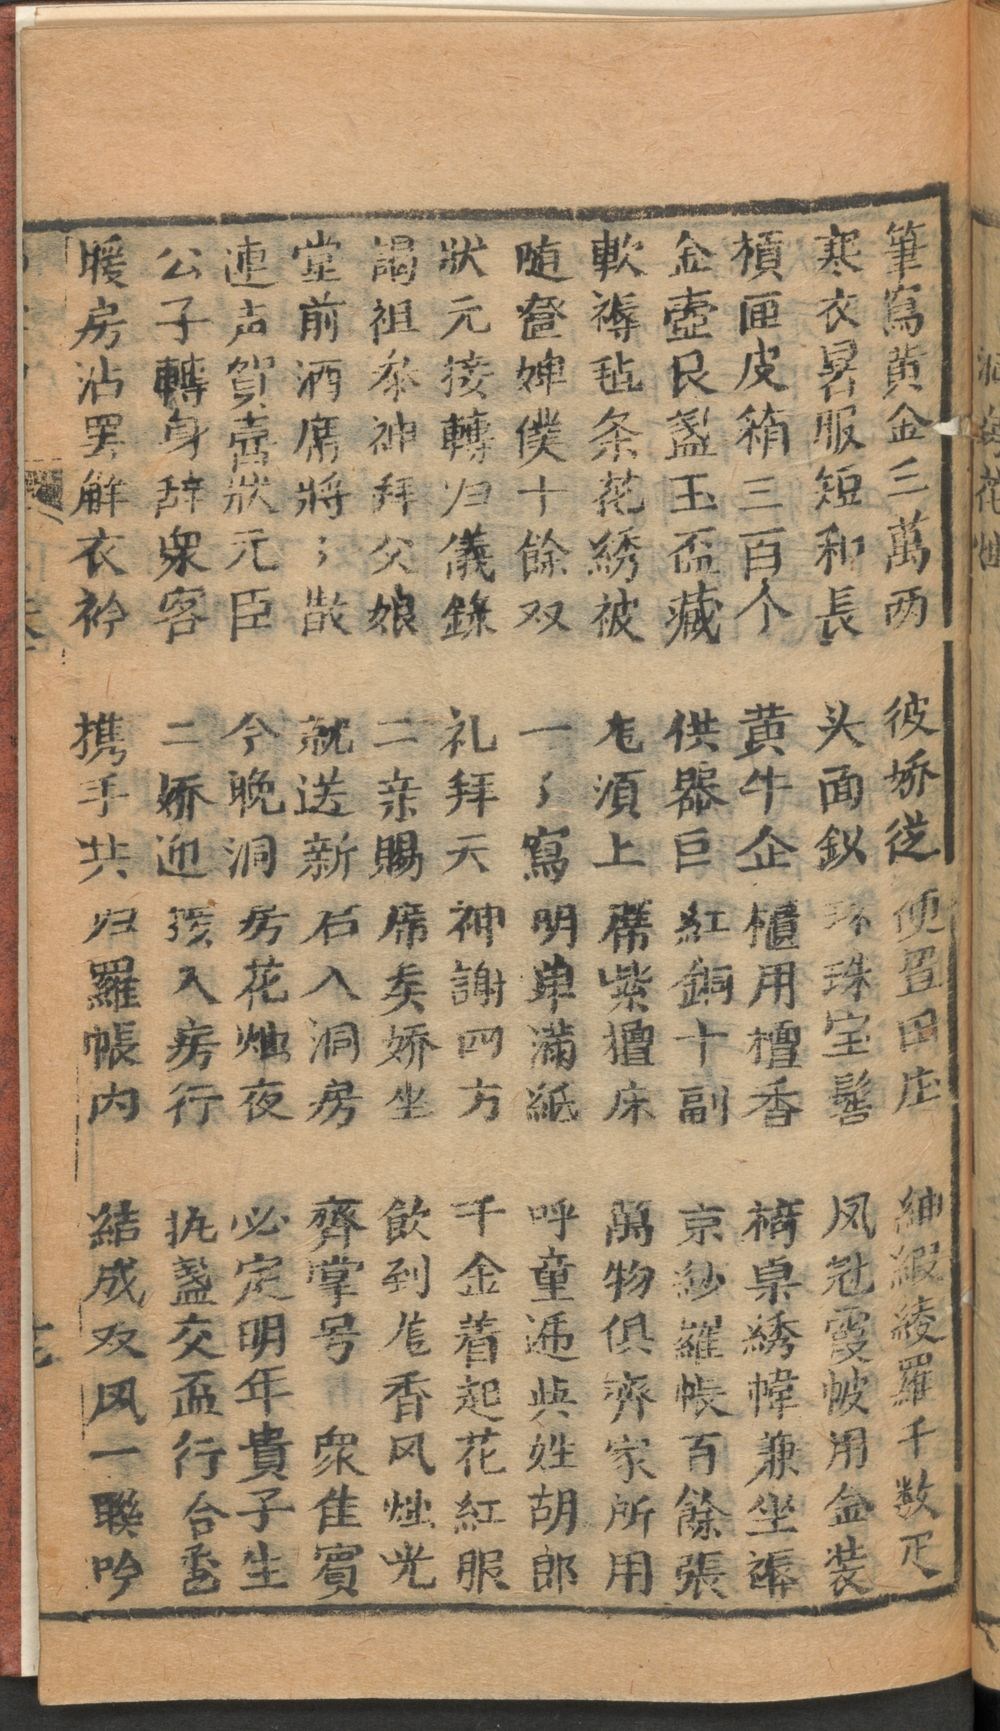 筆寫黃金三萬両 彼娇從便置田庄 紬緞綾羅千数疋
寒衣暑服短和長 头面釵环珠宝髻 凤冠霞帔用金装
槓匣皮箱三百个 黄牛企櫃用檀香 椅桌綉幃兼坐褥
金壺艮盞玉盃藏 供器巨紅銅十副 京紗羅帳百餘張
軟褥毡条花綉被 尨須上蓆紫檀床 萬物俱齊家所用
随奩婢僕十餘双 一〻寫明单滿紙 呼童逓與姓胡郎
狀元接轉归儀錄 礼拜天神謝四方 千金着起花紅服
謁祖参神拜父娘 二亲賜席矣娇坐 飲到尨香风烛光
堂前酒席將〻散 就送新石入洞房 齊掌号 衆佳賓
連声賀喜狀元臣 今晚洞房花烛夜 必定明年貴子生
公子轉身辞衆客 二娇迎接入房行 执盞交盃行合卺
暖房沾罢解衣衿 携手共归羅帳内 结成双凤一聯吟